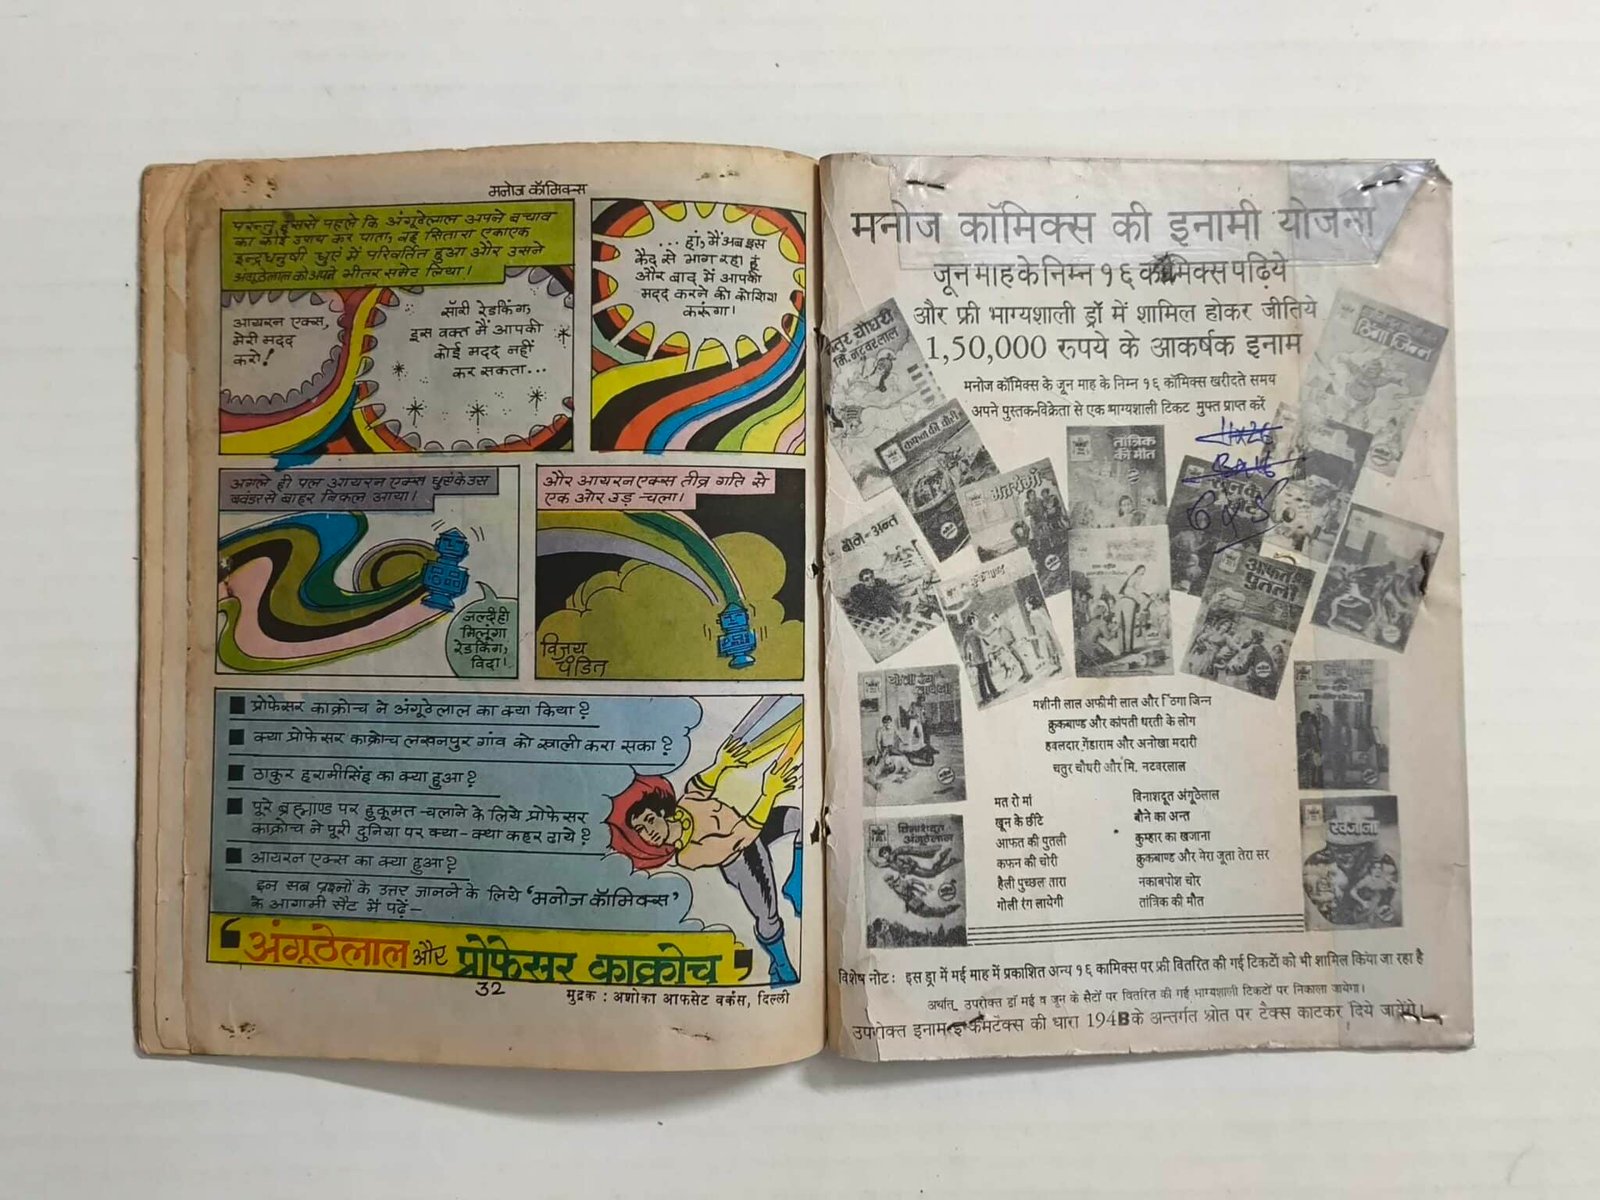 मनोज कॉमिक्स
परन्तु इससे पहले कि अंगूठेलाल अपने बचाव
का कोई उपाय कर पाता, वह सितारा एकाएक
इन्द्रधनुषी धुएं में परिवर्तित हुआ और उसने
अंगूठेलाल को अपने भीतर समेट लिया।
आयरन एक्स,
मेरी मदद
करो!
सॉरी रेडकिंग,
इस वक्त मैं आपकी
कोई मदद नहीं
कर सकता...
... हां, मैं अब इस
कैद से भाग रहा हूं
और बाद में आपकी
मदद करने की कोशिश
करूंगा।
अगले ही पल आयरन एक्स धुएं के उस
बवंडर से बाहर निकल आया।
जल्दी ही
मिलूंगा
रेडकिंग,
विदा।
और आयरन एक्स तीव्र गति से
एक ओर उड़ चला।
विजय
पंडित
प्रोफेसर काक्रोच ने अंगूठेलाल का क्या किया?
क्या प्रोफेसर काक्रोच लखनपुर गांव को खाली करा सका?
ठाकुर हरामीसिंह का क्या हुआ?
पूरे ब्रह्माण्ड पर हुकूमत चलाने के लिये प्रोफेसर
काक्रोच ने पूरी दुनिया पर क्या-क्या कहर ढाये?
आयरन एक्स का क्या हुआ?
इन सब प्रश्नों के उत्तर जानने के लिये 'मनोज कॉमिक्स'
के आगामी सैट में पढ़ें-
'अंगूठेलाल और प्रोफेसर काक्रोच'
32
मुद्रक : अशोका आफसेट वर्कस, दिल्ली
मनोज कॉमिक्स की इनामी योजना
जून माह के निम्न १६ कॉमिक्स पढ़िये
और फ्री भाग्यशाली ड्रॉ में शामिल होकर जीतिये
1,50,000 रूपये के आकर्षक इनाम
मनोज कॉमिक्स के जून माह के निम्न १६ कॉमिक्स खरीदते समय
अपने पुस्तक-विक्रेता से एक भाग्यशाली टिकट मुफ्त प्राप्त करें
चतुर चौधरी
मि. नटवरलाल
ठिगा जिन्न
कफन की चोरी
तांत्रिक
की मौत
मत रो माँ
बौने का अन्त
आफत की
पुतली
गोली रंग लायेगी
विनाशदूत
अंगूठेलाल
खजाना
मशीनी लाल अफीमी लाल और ठिगा जिन्न
क्रुकबाण्ड और कांपती धरती के लोग
हवलदार गेंडाराम और अनोखा मदारी
चतुर चौधरी और मि. नटवरलाल
मत रो मां
खून के छींटे
आफत की पुतली
कफन की चोरी
हैली पुच्छल तारा
गोली रंग लायेगी
विनाशदूत अंगूठेलाल
बौने का अन्त
कुम्हार का खजाना
क्रुकबाण्ड और मेरा जूता तेरा सर
नकाबपोश चोर
तांत्रिक की मौत
विशेष नोट : इस ड्रा में मई माह में प्रकाशित अन्य १६ कामिक्स पर फ्री वितरित की गई टिकटों को भी शामिल किया जा रहा है
अर्थात् उपरोक्त ड्रॉ मई व जून के सैटों पर वितरित की गई भाग्यशाली टिकटों पर निकाला जायेगा।
उपरोक्त इनाम इन्कमटैक्स की धारा 194B के अन्तर्गत श्रोत पर टैक्स काटकर दिये जायेंगे।